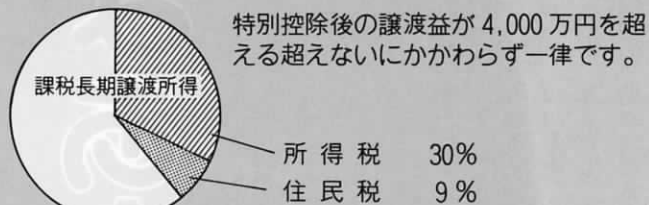 特別控除後の譲渡益が4,000万円を超
える超えないにかかわらず一律です。
課税長期譲渡所得
所得税 30%
住民税 9%